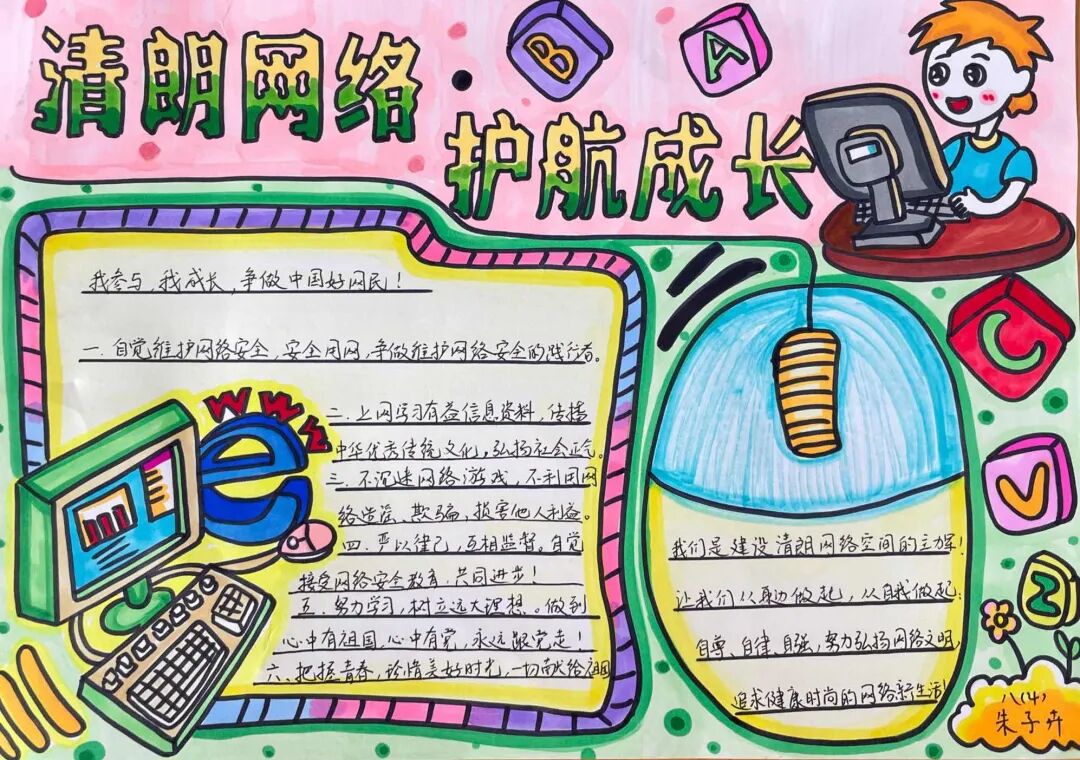 清朗网络
护航成长
B
A
C
V
Z
我参与,我成长,争做中国好网民!
一.自觉维护网络安全,安全用网,争做维护网络安全的践行者。
WWW
e
二.上网学习有益信息资料,传播
中华优秀传统文化,弘扬社会正气。
三.不沉迷网络游戏,不利用网
络造谣、欺骗,损害他人利益。
四.严以律己,互相监督。自觉
接受网络安全教育,共同进步!
五.努力学习,树立远大理想。做到
心中有祖国,心中有党,永远跟党走!
六、把握青春,珍惜美好时光,一切献给祖国
我们是建设清朗网络空间的主力军!
让我们从身边做起,从自我做起:
自尊、自律、自强,努力弘扬网络文明,
追求健康时尚的网络新生活!
八(4)
朱子卉